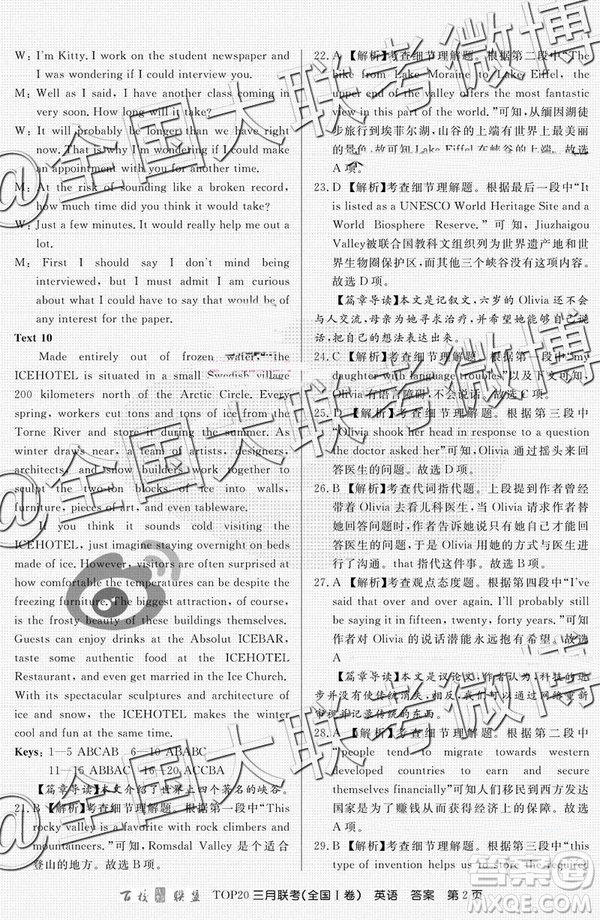 W: I'm Kitty. I work on the student newspaper and
I was wondering if I could interview you.
M: Well as I said, I have another class coming in
very soon. How long will it take?
W: It will probably be longer than we have right
now. That is why I'm wondering if I could make
an appointment with you for another time.
M: At the risk of sounding like a broken record,
how much time did you think it would take?
W: Just a few minutes. It would really help us out a
lot.
M: First I should say I don't mind being
interviewed, but I must admit I am curious
about what I could have to say that would be of
any interest for the paper.
Text 10
Made entirely out of frozen water, the
ICEHOTEL is situated in a small Swedish village
200 kilometers north of the Arctic Circle. Every
spring, workers cut tons and tons of ice from the
Torne River and store it during the summer. As
winter draws near, a team of artists, designers,
architects, and snow builders work together to
sculpt the two-ton blocks of ice into walls,
furniture, pieces of art, and even tableware.
If you think it sounds cold visiting the
ICEHOTEL, just imagine staying overnight on beds
made of ice. However, visitors are often surprised at
how comfortable the temperatures can be despite the
freezing furniture. The biggest attraction, of course,
is the frosty beauty of these buildings themselves.
Guests can enjoy drinks at the Absolut ICEBAR,
taste some authentic food at the ICEHOTEL
Restaurant, and even get married in the Ice Church.
With its spectacular sculptures and architecture of
ice and snow, the ICEHOTEL makes the winter
cool and fun at the same time.
Keys: 1—5 ABCAB 6—10 ABABC
11—15 ABBAC 16—20 ACCBA
【篇章导读】本文介绍了世界上四个著名的峡谷。
21. B 【解析】考查细节理解题。根据第一段中“This
rocky valley is a favorite with rock climbers and
mountaineers.”可知，Romsdal Valley 是个适合
登山的地方。故选 B 项。
22. A 【解析】考查细节理解题。根据第二段中“The
hike from Lake Moraine to Lake Eiffel, the
upper end of the valley offers the most fantastic
view in this world.”可知，从缅因湖徒
步旅行到埃菲尔湖，山谷的上端有世界上最美丽
的景色，故可知 Lake Eiffel 在峡谷的上端。故选
A 项。
23. D 【解析】考查细节理解题。根据最后一段中“It
is listed as a UNESCO World Heritage Site and a
World Biosphere Reserve.”可知，Jiuzhaigou
Valley被联合国教科文组织列为世界遗产地和世
界生物圈保护区，而其三个峡谷没有被提及。故选 D 项。
【篇章导读】本文是记叙文，六岁的 Olivia 还不会
与人交流，母亲为她寻求治疗，并希望她能开口说
话，把自己的想法说出来。
24. C 【解析】考查细节理解题。根据第一段中“my
daughter with language troubles”以及下文可知，
Olivia 有语言障碍，不会说话。故选 C 项。
25. D 【解析】考查细节理解题。根据第三段中
“Olivia shook her head in response to a question
the doctor asked her”可知，Olivia 通过摇头来回
答医生的问题。故选 D 项。
26. B 【解析】考查代词指代题。上段提到作者曾经
带着 Olivia 去看儿科医生，当 Olivia 请求作者替
她回答问题时，作者告诉她说只有自己才能回答
医生的问题，于是 Olivia 用她的方式与医生进
行了沟通。故选 B 项。
27. A 【解析】考查观点态度题。根据第四段中“I've
said that over and over again. I'll probably still
be saying it in fifteen, twenty, forty years.”可知
作者对 Olivia 的说话潜能永远抱有希望。故选
A 项。
【篇章导读】本文是议论文，作者认为，科技的进
步并没有使传统消失，相反，我们在用新的科技重
新审视并记录传统的东西。
28. A 【解析】考查细节理解题。根据第一段中
“people tend to migrate towards western
developed countries to earn and secure
themselves financially”可知人们移民到西方发达
国家是为了赚钱从而获得经济上的保障。故选
A 项。
29. B 【解析】考查细节理解题。根据第三段中“this
type of invention helps us to store the required
百校联盟 TOP20 三月联考(全国Ⅰ卷) 英语 答案 第 2 页
@全国大联考微博
@全国大联考微博
@全国大联考微博